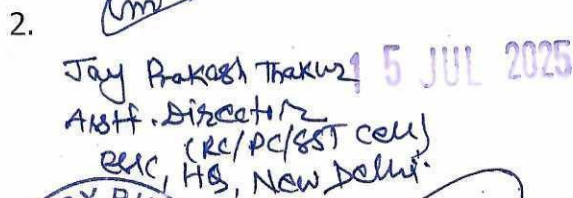 2.
Jay Prakash Thakur 15 JUL 2025
Asstt. Director
(RC/PC/SST Cell)
ESIC, HQ, New Delhi.